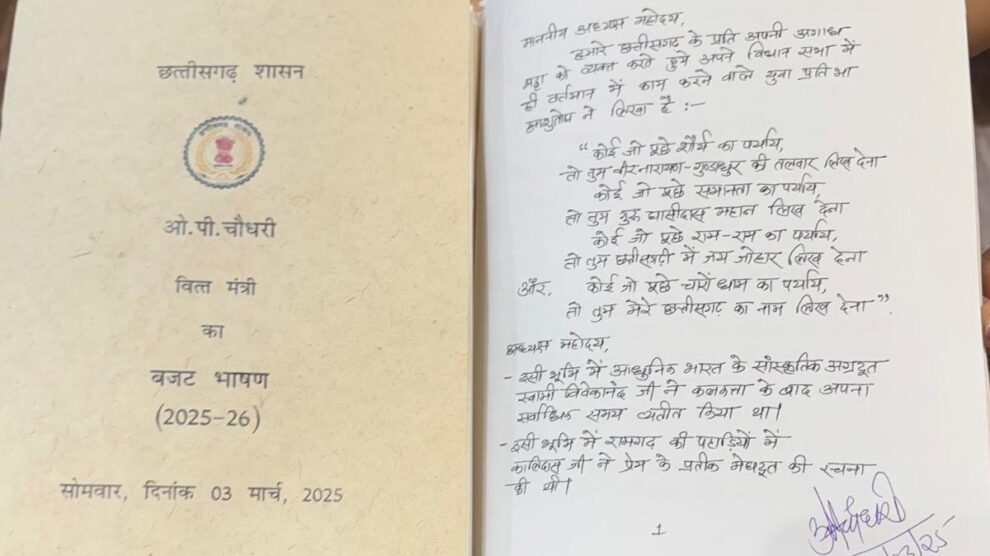 छत्तीसगढ़ शासन
ओ.पी.चौधरी
वित्त मंत्री
का
बजट भाषण
(2025-26)
सोमवार, दिनांक 03 मार्च, 2025
माननीय अध्यक्ष महोदय,
हमारे छत्तीसगढ़ के प्रति अपनी अगाध
श्रद्धा को व्यक्त करते हुये अपने विधान सभा में
ही वर्तमान में काम करने वाले युवा प्रतिभा
आशुतोष ने लिखा है :-
“कोई जो पूछे शौर्य का पर्याय,
तो तुम वीरनारायण-गुण्डाधुर की तलवार लिख देना
कोई जो पूछे समानता का पर्याय,
तो तुम गुरु घासीदास महान लिख देना
कोई जो पूछे राम-राम का पर्याय,
तो तुम छत्तीसगढ़ी में जय जोहार लिख देना
और, कोई जो पूछे चारों धाम का पर्याय,
तो तुम मेरे छत्तीसगढ़ का नाम लिख देना”.
अध्यक्ष महोदय,
- इसी भूमि में आधुनिक भारत के सांस्कृतिक अग्रदूत
स्वामी विवेकानंद जी ने कलकत्ता के बाद अपना
सर्वाधिक समय व्यतीत किया था।
- इसी भूमि में रामगढ़ की पहाड़ियों में
कालिदास जी ने प्रेम के प्रतीक मेघदूत की रचना
की थी।
1